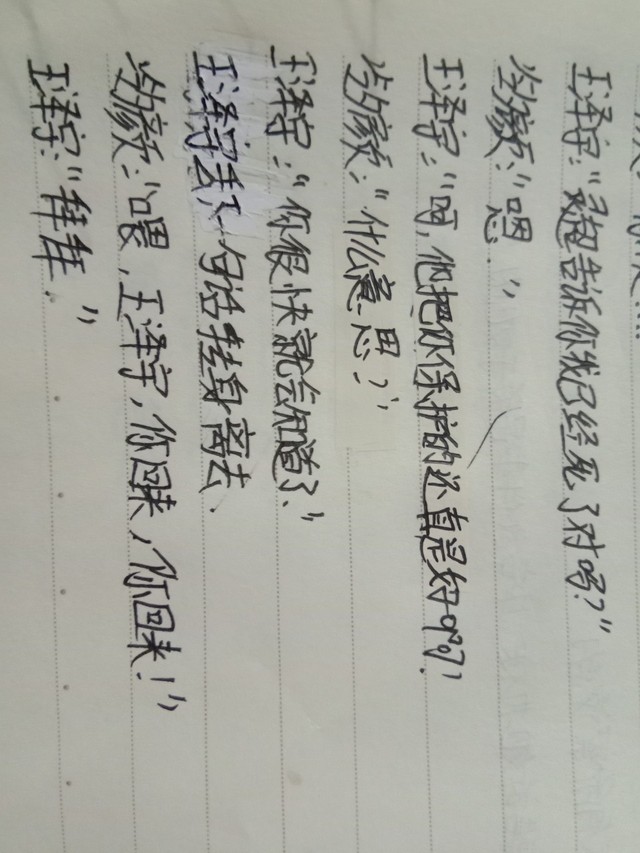 王泽宇:“告诉你我已经死了对吗?”
冷颜:“嗯.”
王泽宇:“呵,他把你保护的还真是好啊!
冷颜:“什么意思?”
王泽宇:“你很快就会知道了.”
王泽宇丢下一句话转身离去.
冷颜:“喂,王泽宇,你回来,你回来!”
王泽宇:“拜拜.”